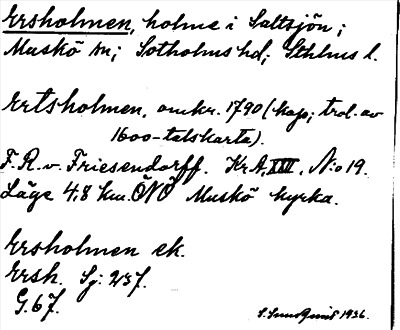 Ersholmen, holme i Saltsjön;
Muskö sn; Sotholms hd; Sthlms l.
Ertsholmen, omkr. 1790 (kop; trol. av
1600-talskarta).
F. R. v. Friesendorff. Kr A, XIII, N:o 19.
Läge 4,8 km. ÖNÖ Muskö kyrka.
Ersholmen ek.
Ersh. Sj: 237.
G. 67.
S. Sundquist 1936.